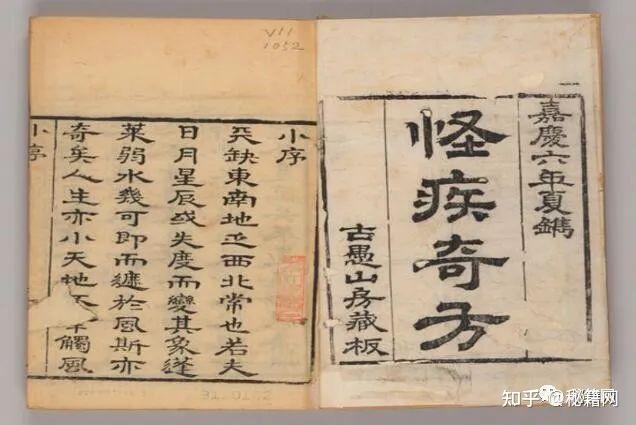 嘉慶六年夏鐫
怪疾奇方
古愚山房藏板
VII
1052
小序
天缺東南地西北常也若夫
日月星辰或失度而變其象蓬
萊弱水幾可即而遽於風斯亦
奇矣人生亦小天地觸風
小序
知乎 @秘籍网
秘籍网